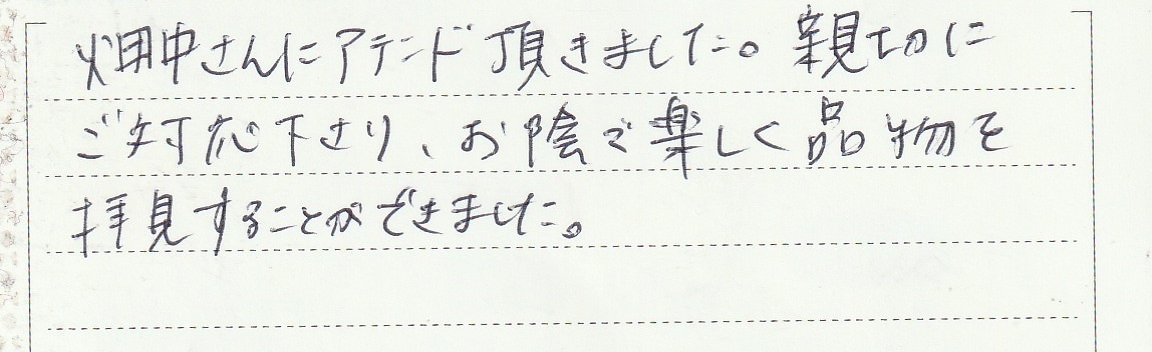 畑中さんにアテンド頂きました。親切に
ご対応下さり、お陰で楽しく品物を
拝見することができました。